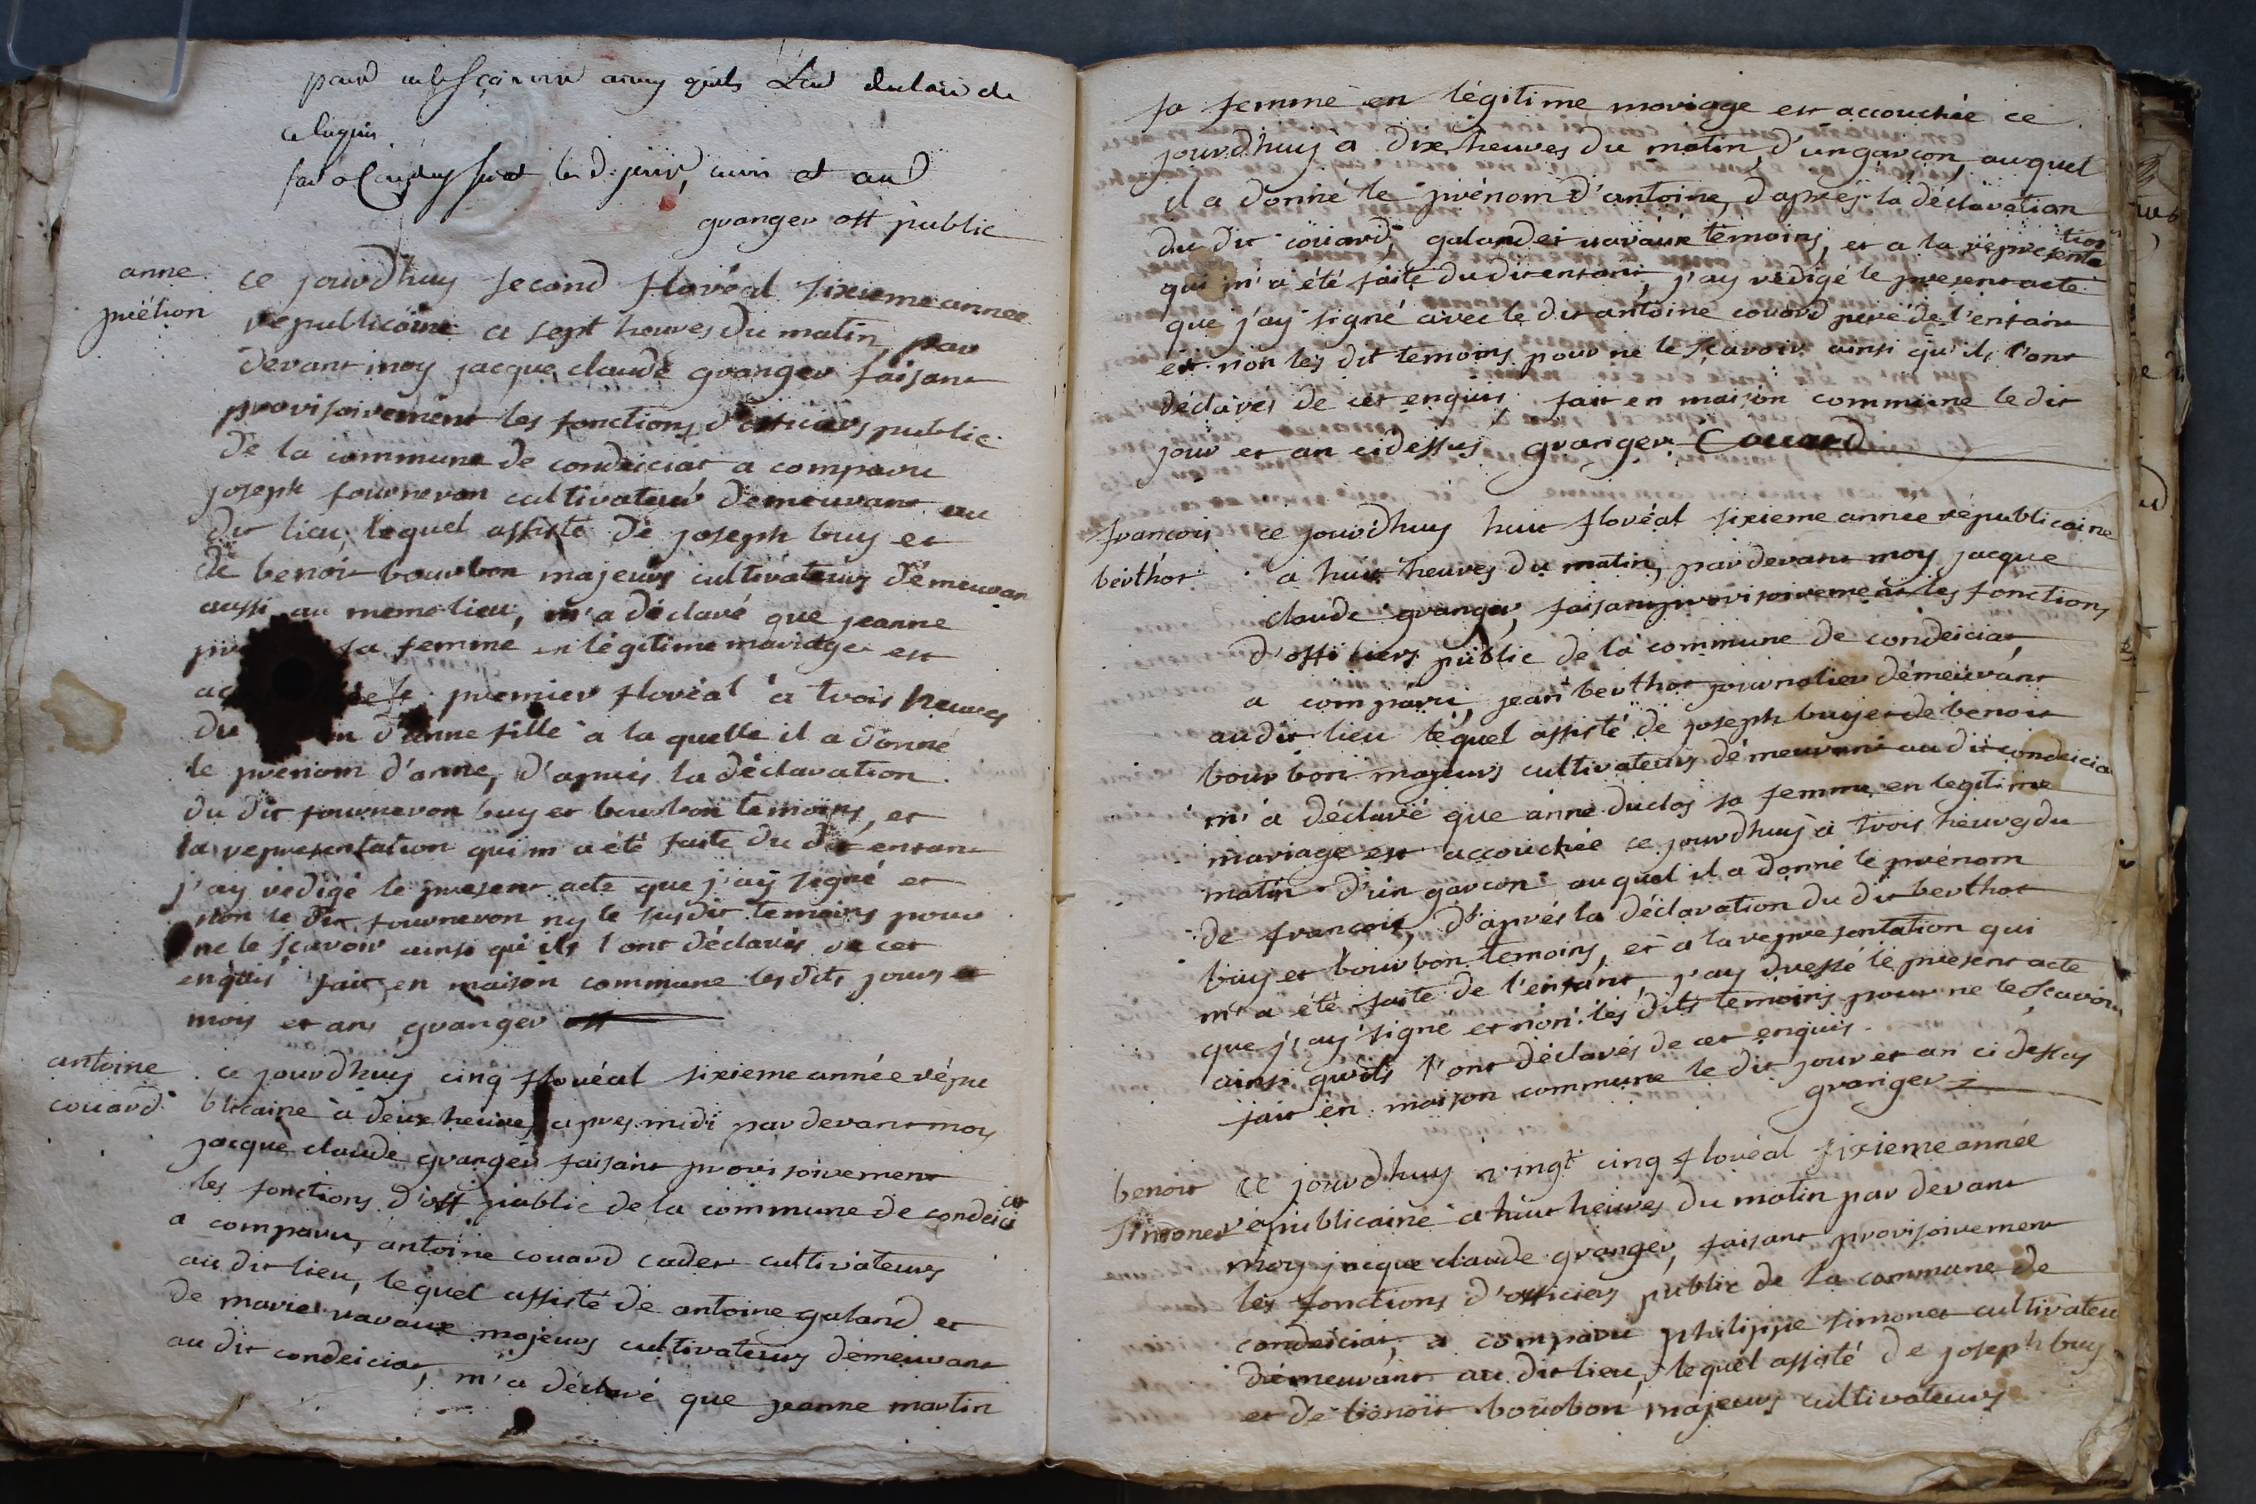 pour ne sçavoir ainsy quils L'ont declaré de
ce enquis
fait a Condeyssiat les d. jour, mois et an
granger off public
anne
prétion
ce jourdhuy second floréal sixieme année
republicaine a sept heures du matin par
devant moy jacque claude granger faisant
provisoirement les fonctions d'officiers public
de la commune de condeiciat a comparu
joseph fourneron cultivateur demeurant au
dit lieu, lequel assisté de joseph buy et
de benoit bourbon majeurs cultivateurs démeuran
aussi au meme lieu, m'a déclaré que jeanne
sa femme en légitime mariage est
premier floréal a trois heures
du d'unne fille a la quelle il a donné
le prénom d'anne, d'aprés la déclaration
du dit fourneron buy et bourbon temoins, et
la representation qui m'a été faite du dit enfant
j'ay redigé le present acte que j'ay signé et
non le dit fourneron ny le susdit temoins pour
ne le sçavoir ainsi qu'ils l'ont déclarés de cet
enquis fait en maison commune les dits jours et
mois et ans granger off
antoine
couard
ce jourdhuy cinq floréal sixieme année répu
blicaine à deux heures apres midi par devant moy
jacque claude granger faisant provisoirement
les fonctions d'off public de la commune de condeiciat
a comparu, antoine couard cadet cultivateurs
au dit lieu, lequel assisté de antoine galand et
de marie ravaux majeurs cultivateurs démeurant
au dit condeiciat, m'a déclaré que jeanne martin
sa femme en légitime mariage est accouchée ce
jourdhuy a dix heures du matin, d'un garçon auquel
il a donné le prénom d'antoine, d'aprés la déclaration
du dit couard, galand et ravaux témoins, et a la representation
qui m'a été faite du dit enfant, j'ay redigé le present acte
que j'ay signé avec le dit antoine couard pere de l'enfant
et non les dit temoins pour ne le sçavoir ainsi qu'ils l'ont
déclarés de cet enquis fait en maison commune le dit
jour et an cidessus granger Couard
francois
berthot
ce jourdhuy huit floréal sixieme annee républicaine
a huit heures du matin, par devant moy jacque
claude granger, faisant provisoirement les fonctions
d'officiers public de la commune de condeiciat,
a comparu, jean berthot journalier démeurant
audit lieu léquel assisté de joseph buy et de benoit
bourbon majeurs cultivateurs démeurant au dit condeicia
m'a déclaré que anne duclos sa femme en legitime
mariage est accouchée ce jourdhuy a trois heures du
matin d'un garcon auquel il a donné le prénom
de francois, d'aprés la déclaration du dit berthot
buy et bourbon temoins, et a la representation qui
m'a été faite de l'enfant, j'ay dressé le present acte
que j'ay signé et non les dits temoins pour ne le scavoir
ainsi qu'ils l'ont déclarés de cet enquis.
fait en maison commune le dit jour et an ci dessus
granger
benoit
simonet
ce jourdhuy vingt cinq floréal sixieme année
républicaine a huit heures du matin par devant
moy jacque claude granger, faisant provisoirement
les fonctions d'officiers public de la commune de
condeiciat, a comparu philippe simonet cultivateu
démeurant au dit lieu, lequel assisté de joseph buy
et de benoit bourbon majeurs cultivateurs